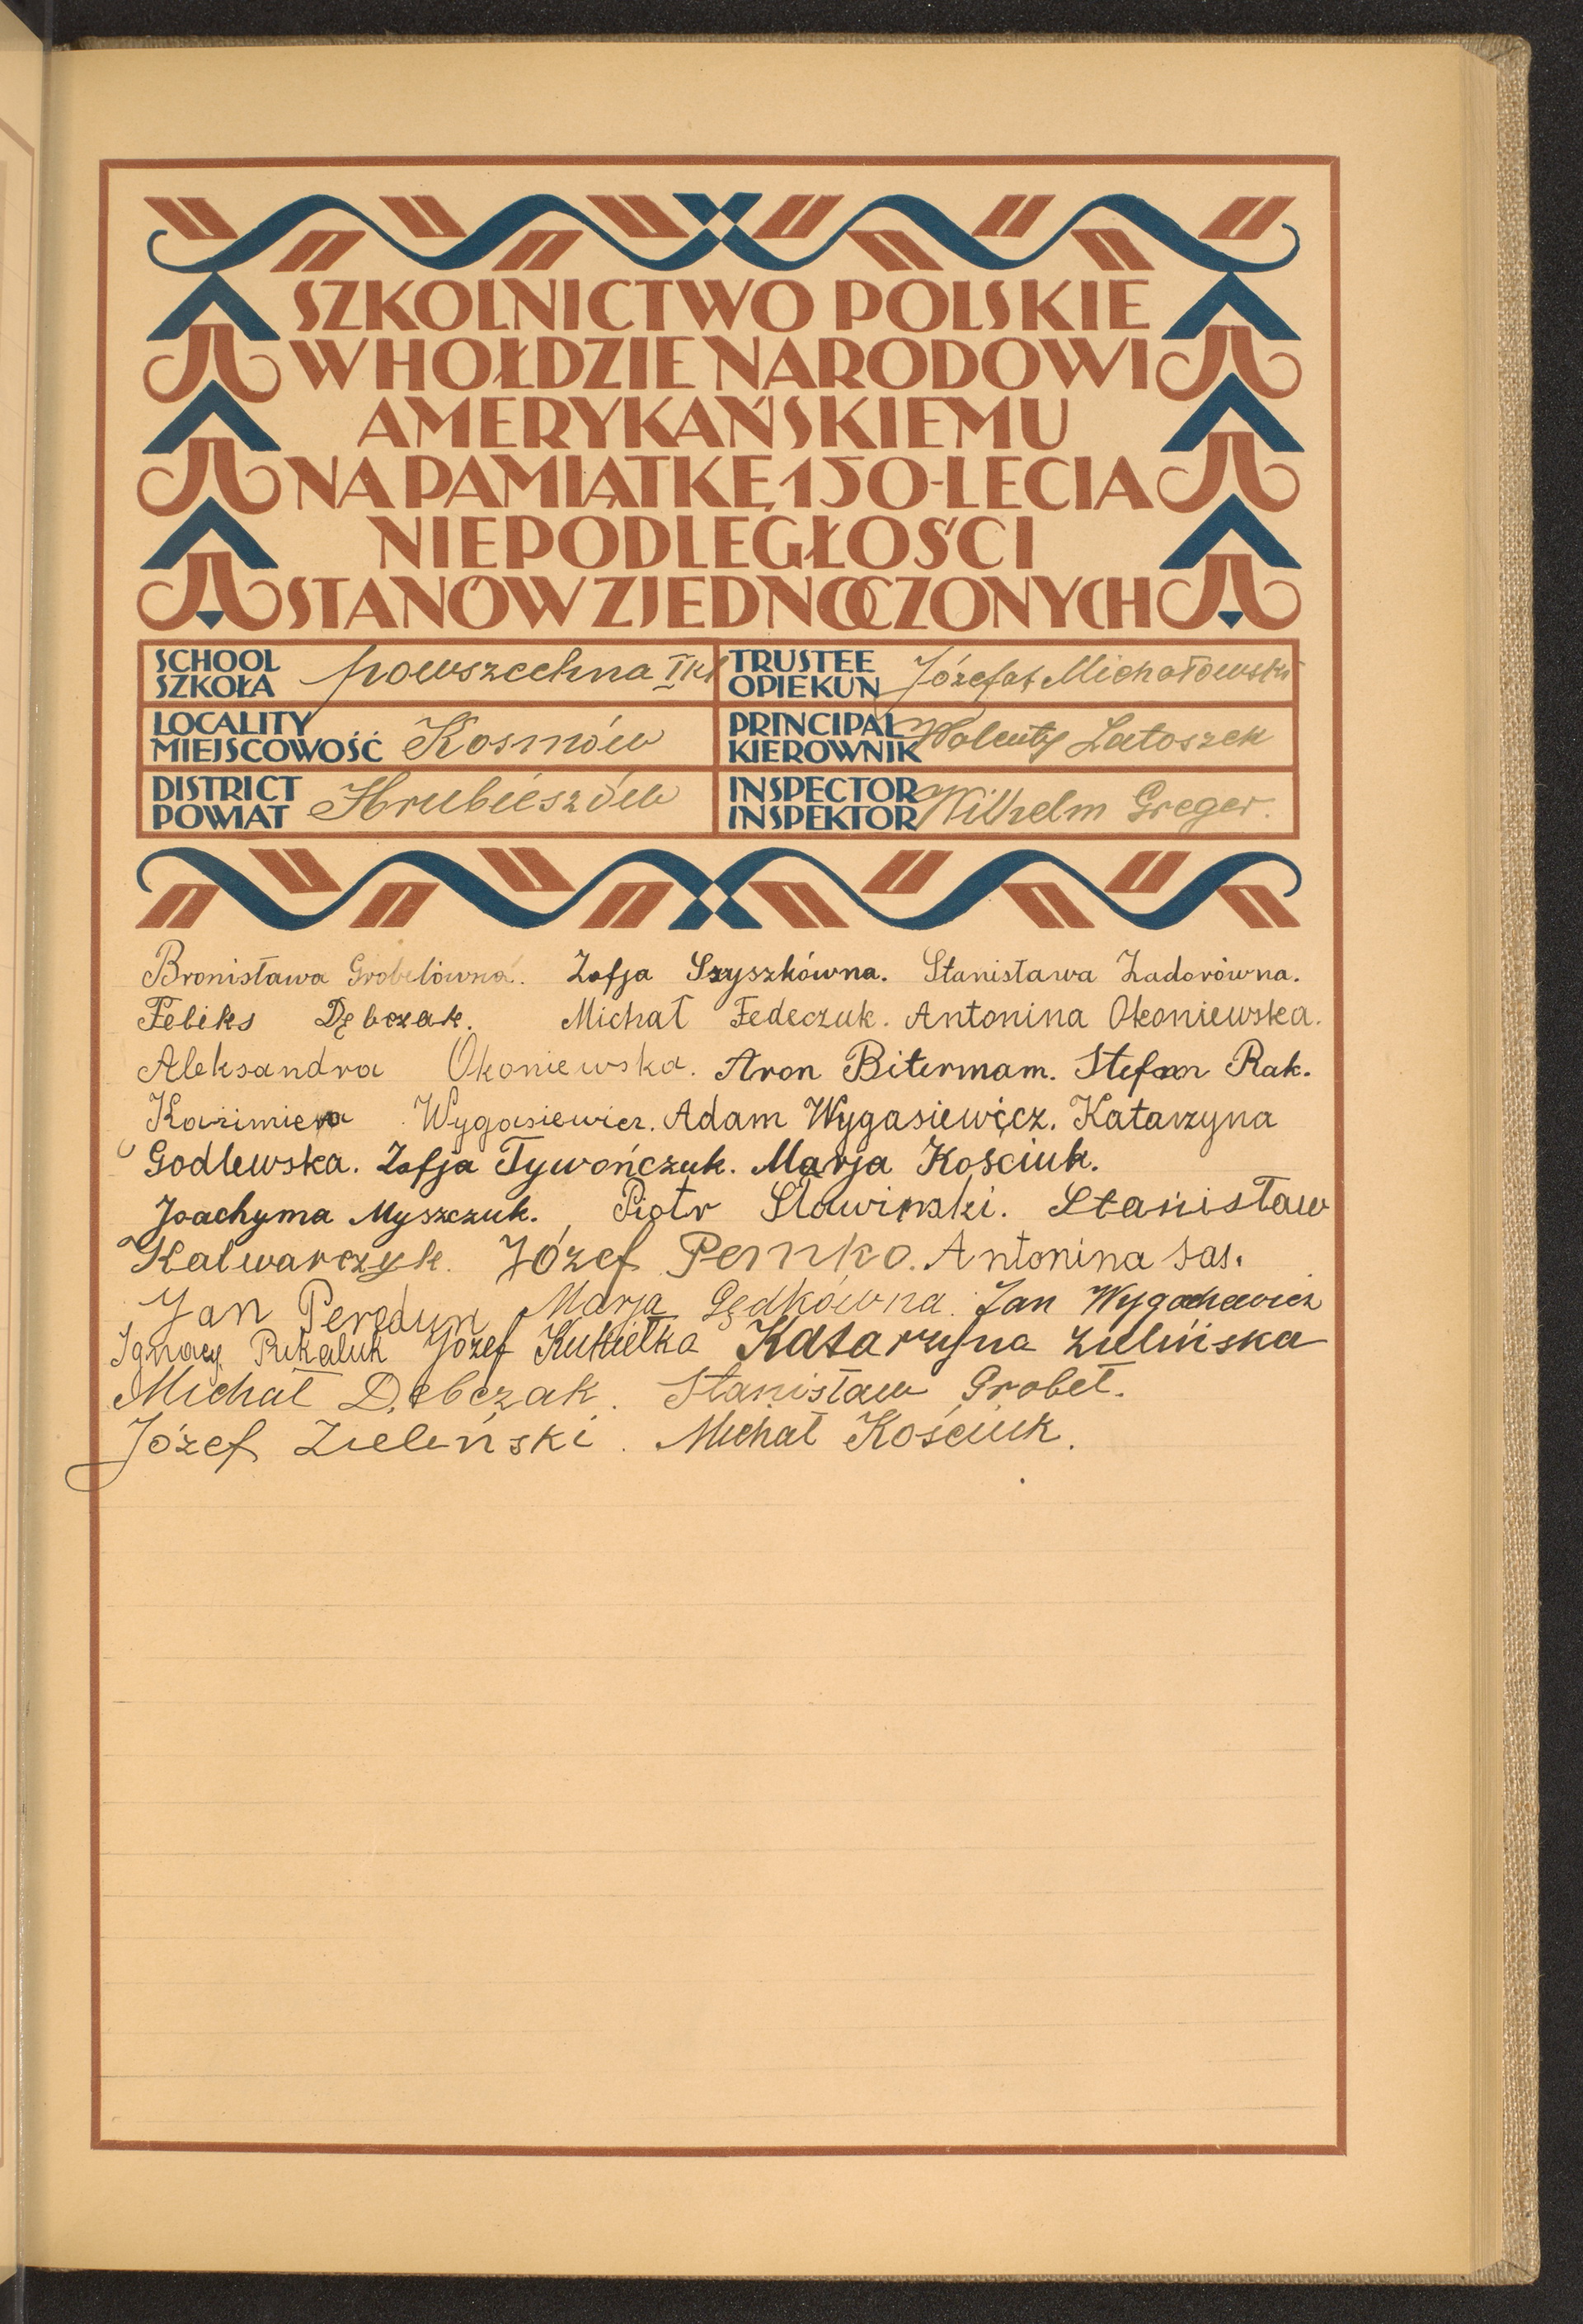 SZKOLNICTWO POLSKIE
W HOŁDZIE NARODOWI
AMERYKAŃSKIEMU
NA PAMIĄTKĘ 150-LECIA
NIEPODLEGŁOŚCI
STANÓW ZJEDNOCZONYCH
SCHOOL
SZKOŁA powszechna I kl
TRUSTEE
OPIEKUN Józefat Michałowski
LOCALITY
MIEJSCOWOŚĆ Kosmów
PRINCIPAL
KIEROWNIK Walenty Latoszek
DISTRICT
POWIAT Hrubieszów
INSPECTOR
INSPEKTOR Wilhelm Greger.
Bronisława Grobelówna. Zofja Szyszkówna. Stanisława Zadorówna.
Feliks Dębczak. Michał Fedeczuk. Antonina Okoniewska.
Aleksandra Okoniewska. Aron Bitermam. Stefan Rak.
Kazimiera Wygasiewicz. Adam Wygasiewicz. Katarzyna
Godlewska. Zofja Tywończuk. Marja Kościuk.
Joachyma Myszczuk. Piotr Sławinski. Stanisław
Kalwarczyk. Józef Pemko. Antonina Sas.
Jan Peredun Marja Gędkówna. Jan
Ignacy Pukaluk Józef Kukiełka Katarzyna Zielińska
Michał Dębczak. Stanisław Grobel.
Józef Zieliński. Michał Kościuk.